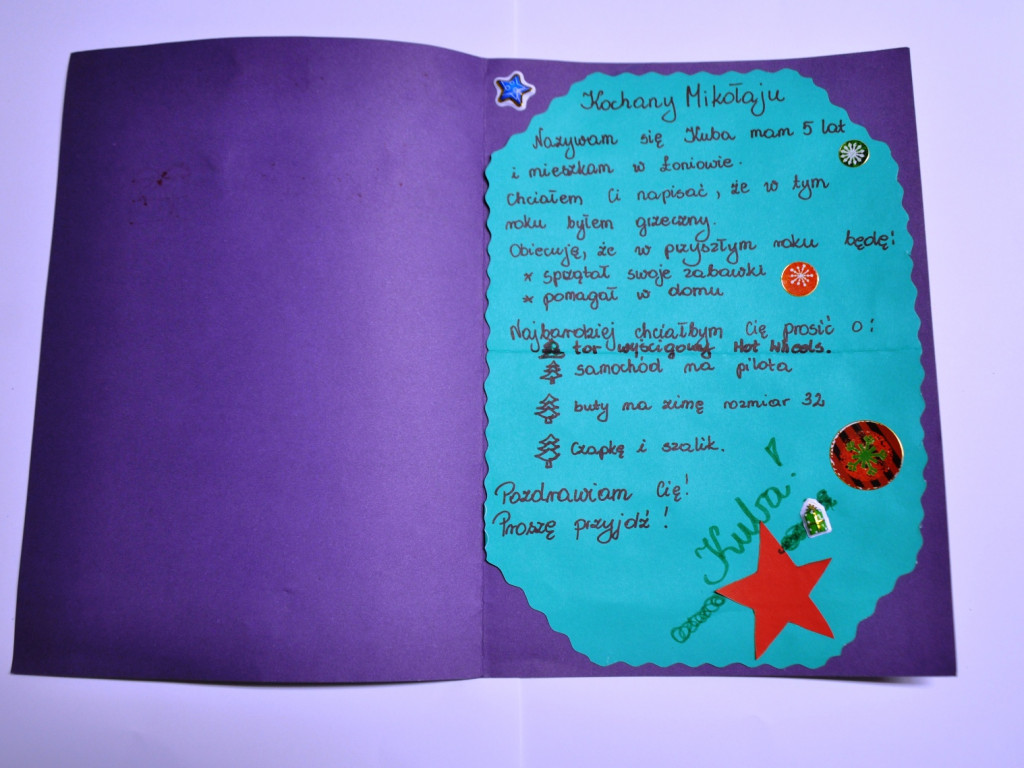 Kochany Mikołaju
Nazywam się Kuba mam 5 lat
i mieszkam w Łoniowie.
Chciałem Ci napisać, że w tym
roku byłem grzeczny.
Obiecuję, że w przyszłym roku będę:
* sprzątał swoje zabawki
* pomagał w domu
Najbardziej chciałbym Cię prosić o:
tor wyścigowy Hot Wheels.
samochód na pilota
buty na zimę rozmiar 32
Czapkę i szalik.
Pozdrawiam Cię!
Proszę przyjdź!
Kuba!